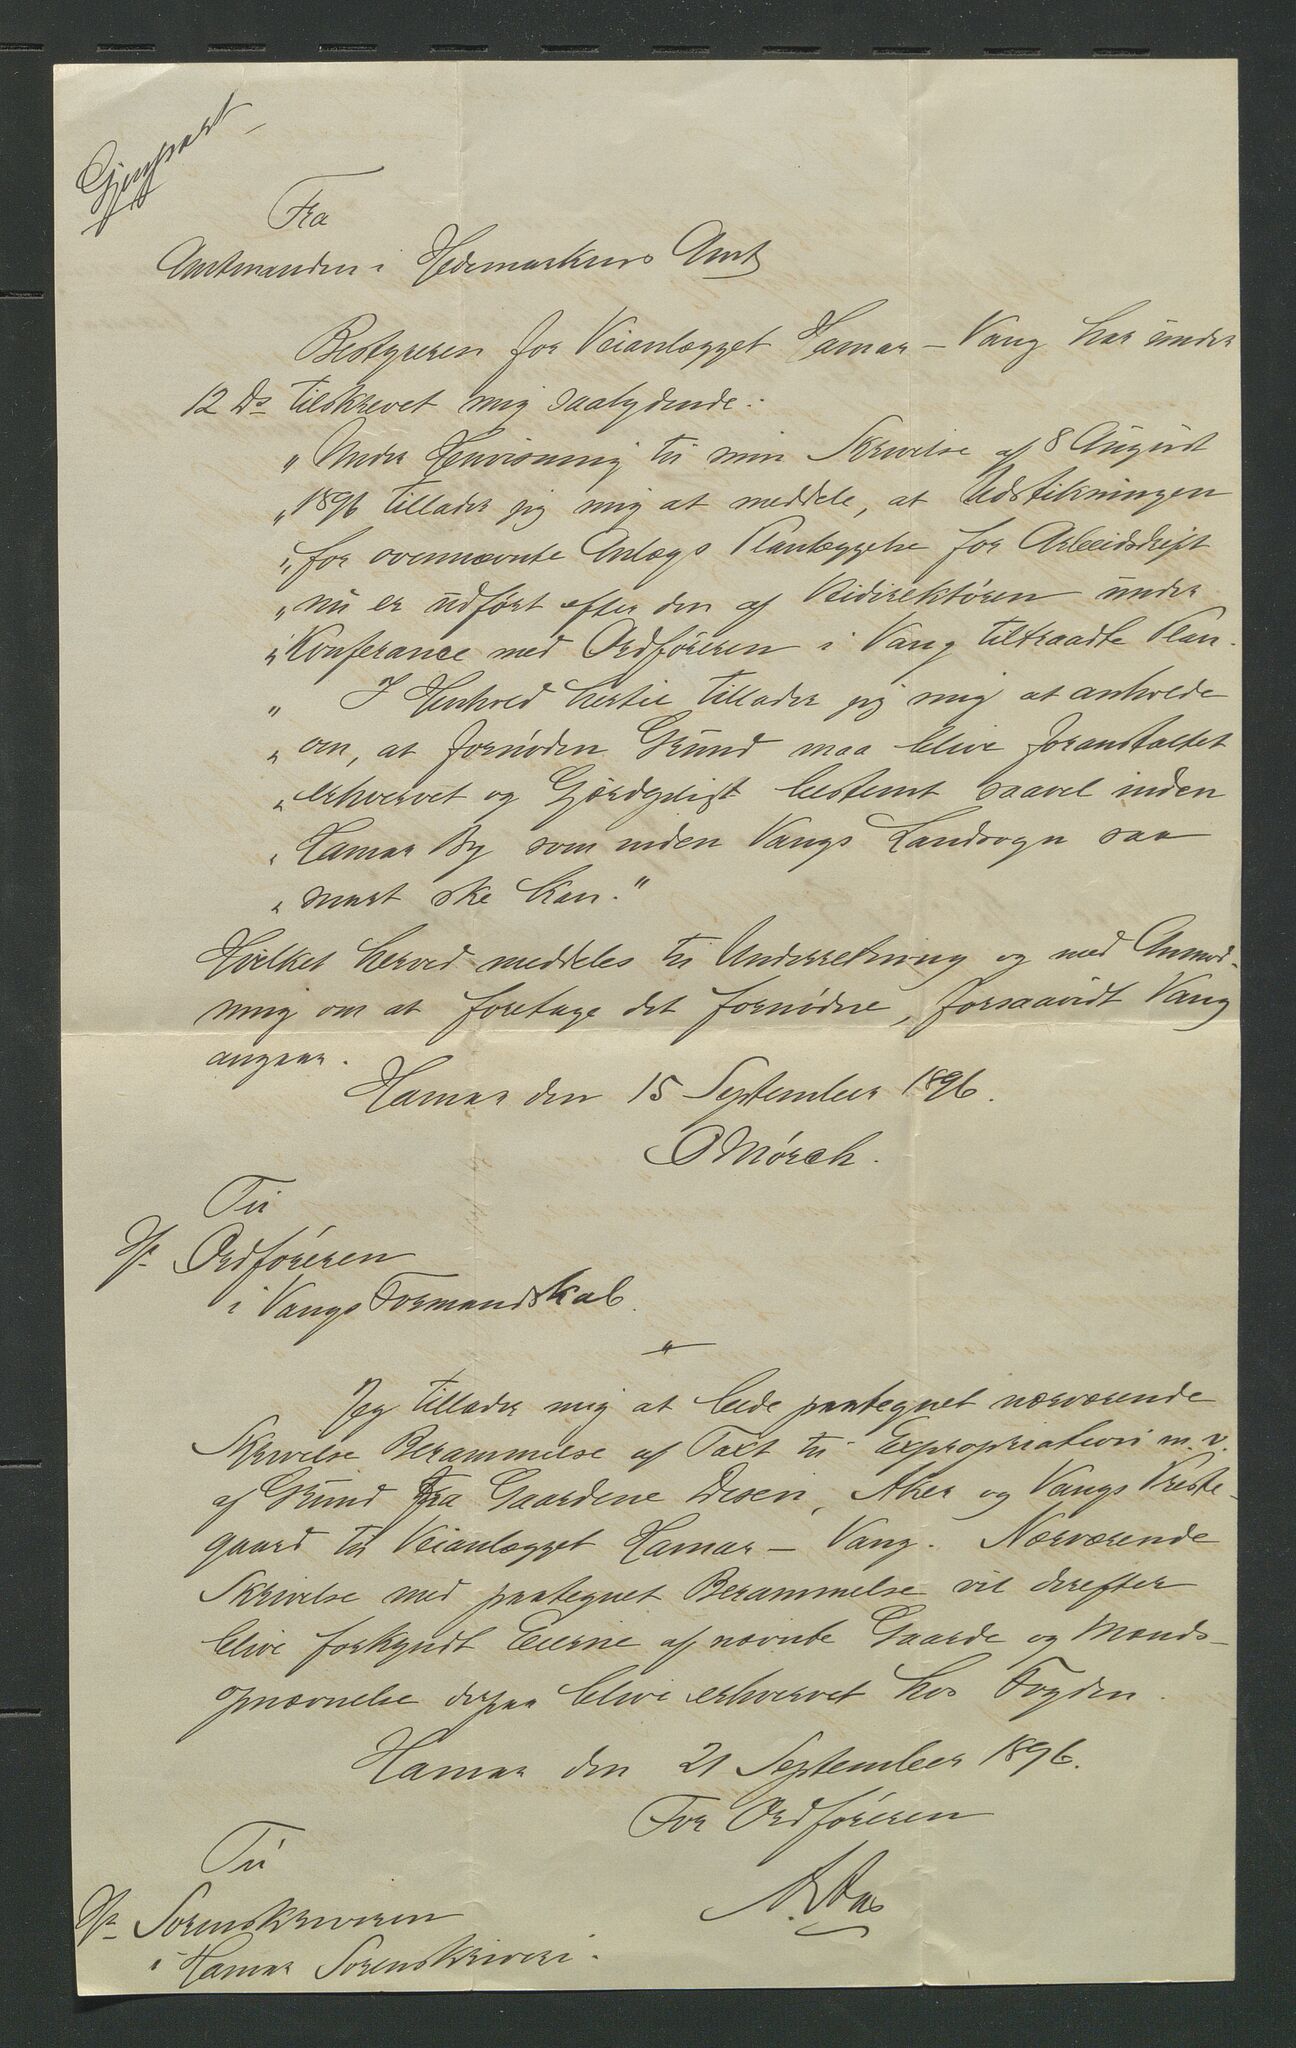 Gjenpart
Fra
Amtmanden i Hedemarkens Amt
Bestyreren for Veianlægget Hamar – Vang har under
12 Ds tilskrevet mig saalydende:
"Under Henvisning til min Skrivelse af 8 August
"1896 tillader jeg mig at meddele, at Udstikningen
"for ovennævnte Anlægs Planlæggelse for Arbeidsdrift
"nu er udført efter den af Veidirektøren under
"Konferance med Ordføreren i Vang tiltraadte Plan.
" I Henhold hertil tillader jeg mig at anholde
"om, at fornøden Grund maa blive foranstaltet
"erhvervet og Gjerdepligt bestemt saavel inden
"Hamar By som inden Vangs Landsogn saa
"snart ske kan."
Hvilket herved meddeles til Underretning og med Anmod-
ning om at foretage det fornødne, forsaavidt Vang
angaar.
Hamar den 15 September 1896.
O Mørch.
Til
Hr Ordføreren
i Vangs Formandskab.
"
Jeg tillader mig at bede paategnet nærværende
Skrivelse Berammelse af Taxt til Expropriation m. v.
af Grund fra Gaardene Disen, Aker og Vangs Preste-
gaard til Veianlægget Hamar – Vang. Nærværende
Skrivelse med paategnet Berammelse vil derefter
blive forkyndt Eierne af nævnte Gaarde og Mands-
opnævnelse derpaa blive erhvervet hos Fogden.
Hamar den 21 September 1896.
For Ordføreren
Til
Hr Sorenskriveren
i Hamar Sorenskriveri.